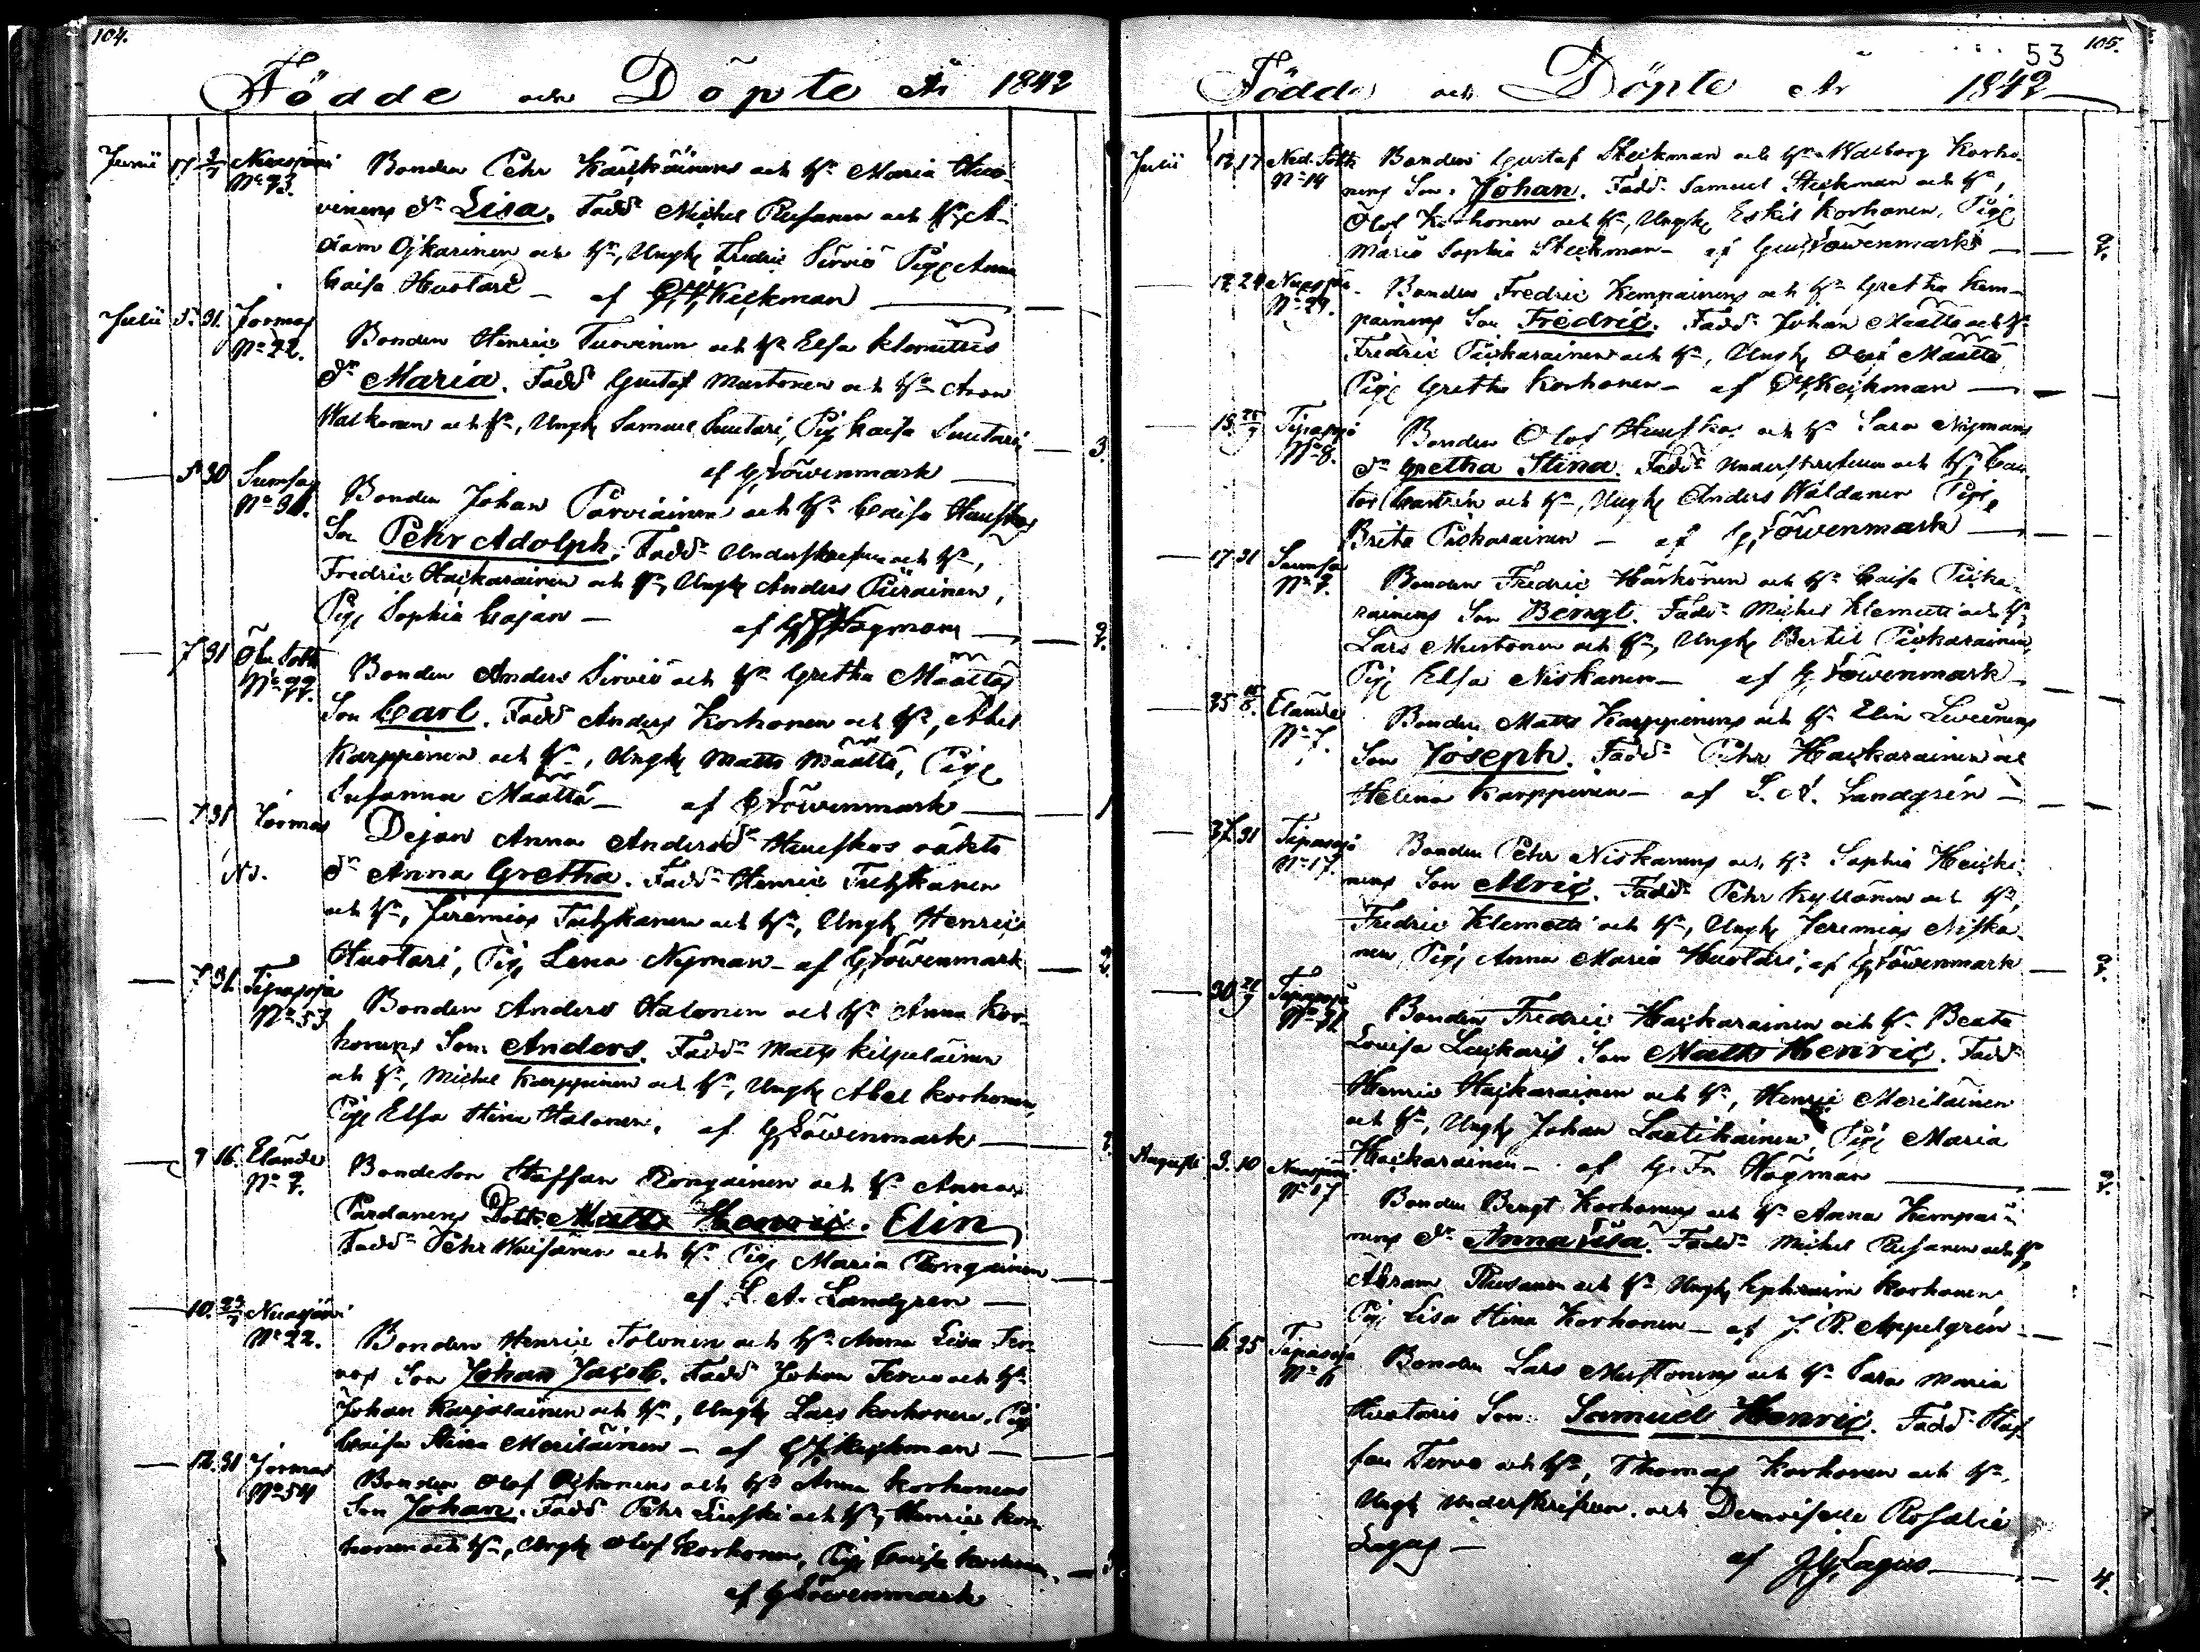 104.
Födde och Döpte År 1842
Junii 17 2/7 Nuasjärvi Bonden Pehr Karjkäinens och H:n Maria Huo-
N:o 93. vinens D:r Lisa. Fadd: Michel Pusanen och H:n, A-
dam Ojkarinen och H:n, Ungk Fredric Sirviö Pig Anna
Caisa Huotari – af Keckman
Julii 5 31. Jormas Bonden Henric Tuovinen och H:n Elsa Klemettis
N:o 22. D:r Maria. Fadd: Gustaf Mustonen och H:n Aron
Walkonen och H:n, Ungk Samuel Suutari, Pig Kaisa Suutari 3.
af G Löwenmark
5 30 Sumsa Bonden Johan Parviainen och H:n Caisa Hauskas
Son Pehr Adolph. Fadd: Underskrifven och H:n,
Fredric Hackarainen och H:n, Ungk Anders Piirainen,
Pig Sophia Cajan – af Hagman 2.
7 31 Öfv. Sotk Bonden Anders Sirviö och H:n Gretha Määttäs
Son Carl. Fadd: Anders Korhonen och H:n, Abel
Karppinen och H:n, Ungk Matts Määttä, Pig
Susanna Määttä – af G Löwenmark 1
7 31 Jormas Dejan Anna Andersd:r Hauskas oäkta
D:r Anna Gretha. Fadd: Henric Tuhkanen
och H:n, Jeremias Tuhkanen och H:n, Ungk Henric
Huotari, Pig Lena Nyman – af G Löwenmark
7 31. Tipasoja Bonden Anders Halonen och H:n Anna Kor-
N:o 53 honens Son Anders. Fadd: Matts Kilpeläinen
och H:n, Michel Karppinen och H:n, Ungk Abel Korhonen,
Pig Elsa Stina Halonen. af G Löwenmark
9 16. Elände Bondeson Staffan Rongainen och H:n Anna
N:o 7. Pardanens Dott: Matts Henric. Elin
Fadd: Pehr Waisänen och H:n Pig Maria Rongainen
af L. A. Landgren
10. 23/7 Nuasjärvi Bonden Henric Tolonen och H:n Anna Lisa Ter-
N:o 22. vos Son Johan Jacob. Fadd: Johan Tervo och H:n
Johan Karjalainen och H:n, Ungk Lars Korhonen, Pig
Caisa Stina Meriläinen – af Keckman
12. 31 Jormas Bonden Olof Korhonens och H:n Anna Korhonens
N:o 54 Son Johan. Fadd: Pehr och H:n, Henric Kor-
honen och H:n, Ungk Olof Korhonen, Pig Caisa Korhonen
af G Löwenmark
53 105.
Födde och Döpte År 1842
Julii 12 17 Ned. Sotk Bonden Gustaf Keckman och H:n Walborg Korho-
N:o 14 nens Son Johan. Fadd: Samuel Keckman och H:n,
Olof Korhonen och H:n, Ungk Eskil Korhonen, Pig
Maria Sophia Keckman – af Löwenmark 2.
12. 24 Nuasjär. Bonden Fredric Kempainens och H:n Gretha Kem-
N:o 29. painens Son Fredric. Fadd: Johan Määttä och H:n
Fredric Piskarainen och H:n, Ungk Määttä
Pig Gretha Korhonen – af Keckman
15. Tipasoja Bonden Olof Hauskas och H:n Sara Nymans
N:o 8. D:r Gretha Stina. Fadd: Underskrifven och H:n,
och H:n, Ungk Anders Waldanen Pig
Brita Piskarainen – af G Löwenmark
17 31 Saumsa Bonden Fredric Härkönen och H:n Caisa Piska-
N:o 7. rainens Son Bengt. Fadd: Michel Klemetti och H:n
Lars Mustonen och H:n, Ungk Bertil Piskarainen,
Pig Elsa Niskanen – af G Löwenmark
25 Elände Bonden Matts Karppinens och H:n Elin Leveinens
N:o 7. Son Joseph. Fadd: Pehr Hackarainen och
Helena Karppinen – af L. A. Landgrén
27. 31 Tipasoja Bonden Pehr Niskanens och H:n Sophia Heicki-
N:o 17. nens Son Alric. Fadd: Pehr Kyllönen och H:n,
Fredric Klemetti och H:n, Ungk Jeremias Niska-
nen, Pig Anna Maria Huotari, af G Löwenmark 2.
30 Tipasoja Bonden Fredric Hackarainen och H:n Beata
Lovisa Laskaris Son Matts Henric. Fadd:
Henric Hackarainen och H:n, Henric Meriläinen
och H:n, Ungk Johan Laatikainen, Pig Maria
Hackarainen – af G. Fr. Hagman 2.
Augusti 3. 10 Nuasjärvi Bonden Bengt Korhonens och H:n Anna Kempai-
N:o 17 nens D:r Anna Lisa. Fadd: Michel Pusanen och H:n,
Abram Pusanen och H:n Ungk Ephraim Korhonen
Pig Lisa Stina Korhonen – af J. R. Appelgrén
6. 25 Tipasoja Bonden Lars Mustonens och H:n Sara Maria
N:o 6 Huotaris Son Samuel Henric. Fadd: Staf-
fan Tervo och H:n, Thomas Korhonen och H:n,
Ungk Underskrifven och Demoiselle Rosalie
Lagus – af J G Lagus 4.